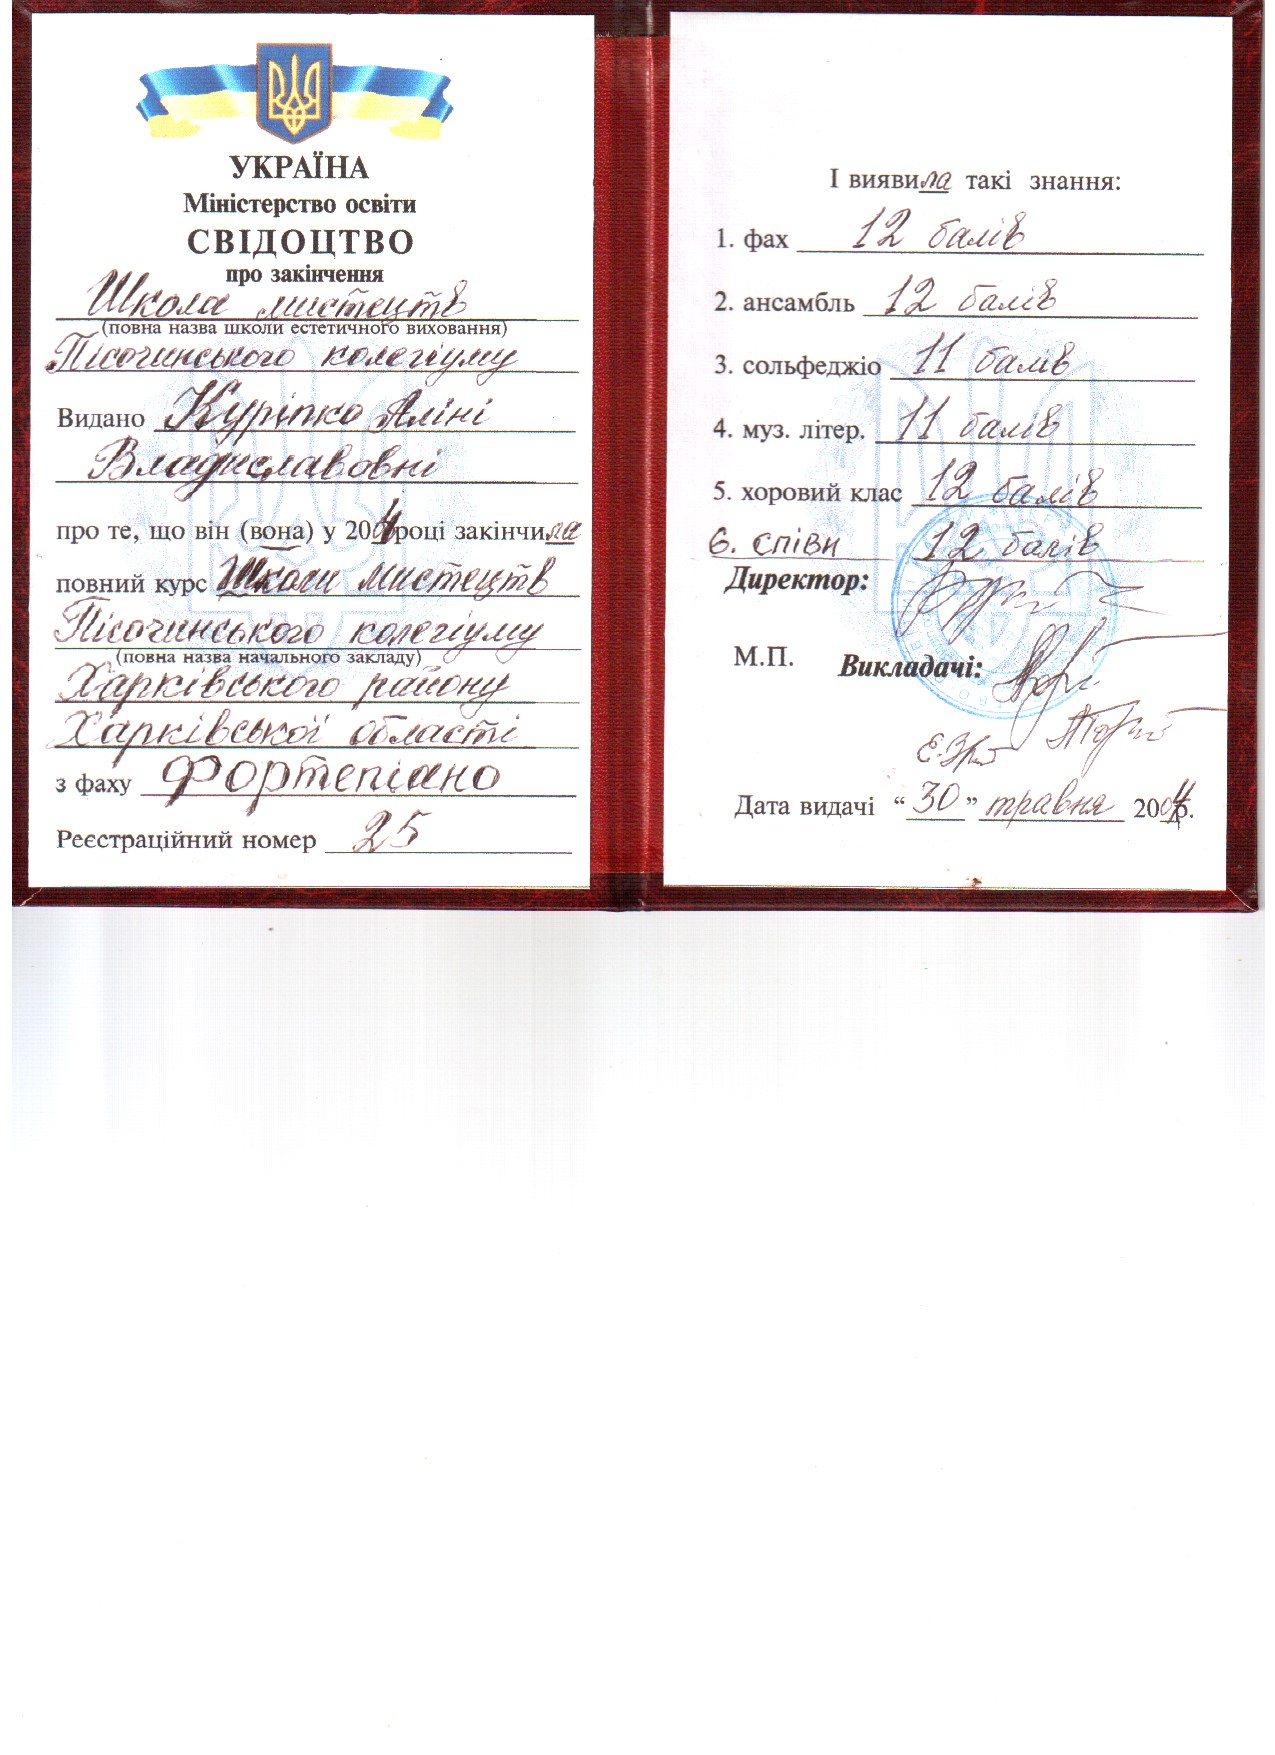 УКРАЇНА
Міністерство освіти
СВІДОЦТВО
про закінчення
Школа мистецтв
(повна назва школи естетичного виховання)
Пісочинського колегіуму
Видано Куріпко Аліні
Владиславовні
про те, що він (вона) у 2004 році закінчила
повний курс Школи мистецтв
Пісочинського колегіуму
(повна назва начального закладу)
Харківського району
Харківської області
з фаху Фортепіано
Реєстраційний номер 25
І виявила такі знання:
1. фах 12 балів
2. ансамбль 12 балів
3. сольфеджіо 11 балів
4. муз. літер. 11 балів
5. хоровий клас 12 балів
6. співи 12 балів
Директор:
М.П. Викладачі:
Дата видачі “30” травня 2004р.